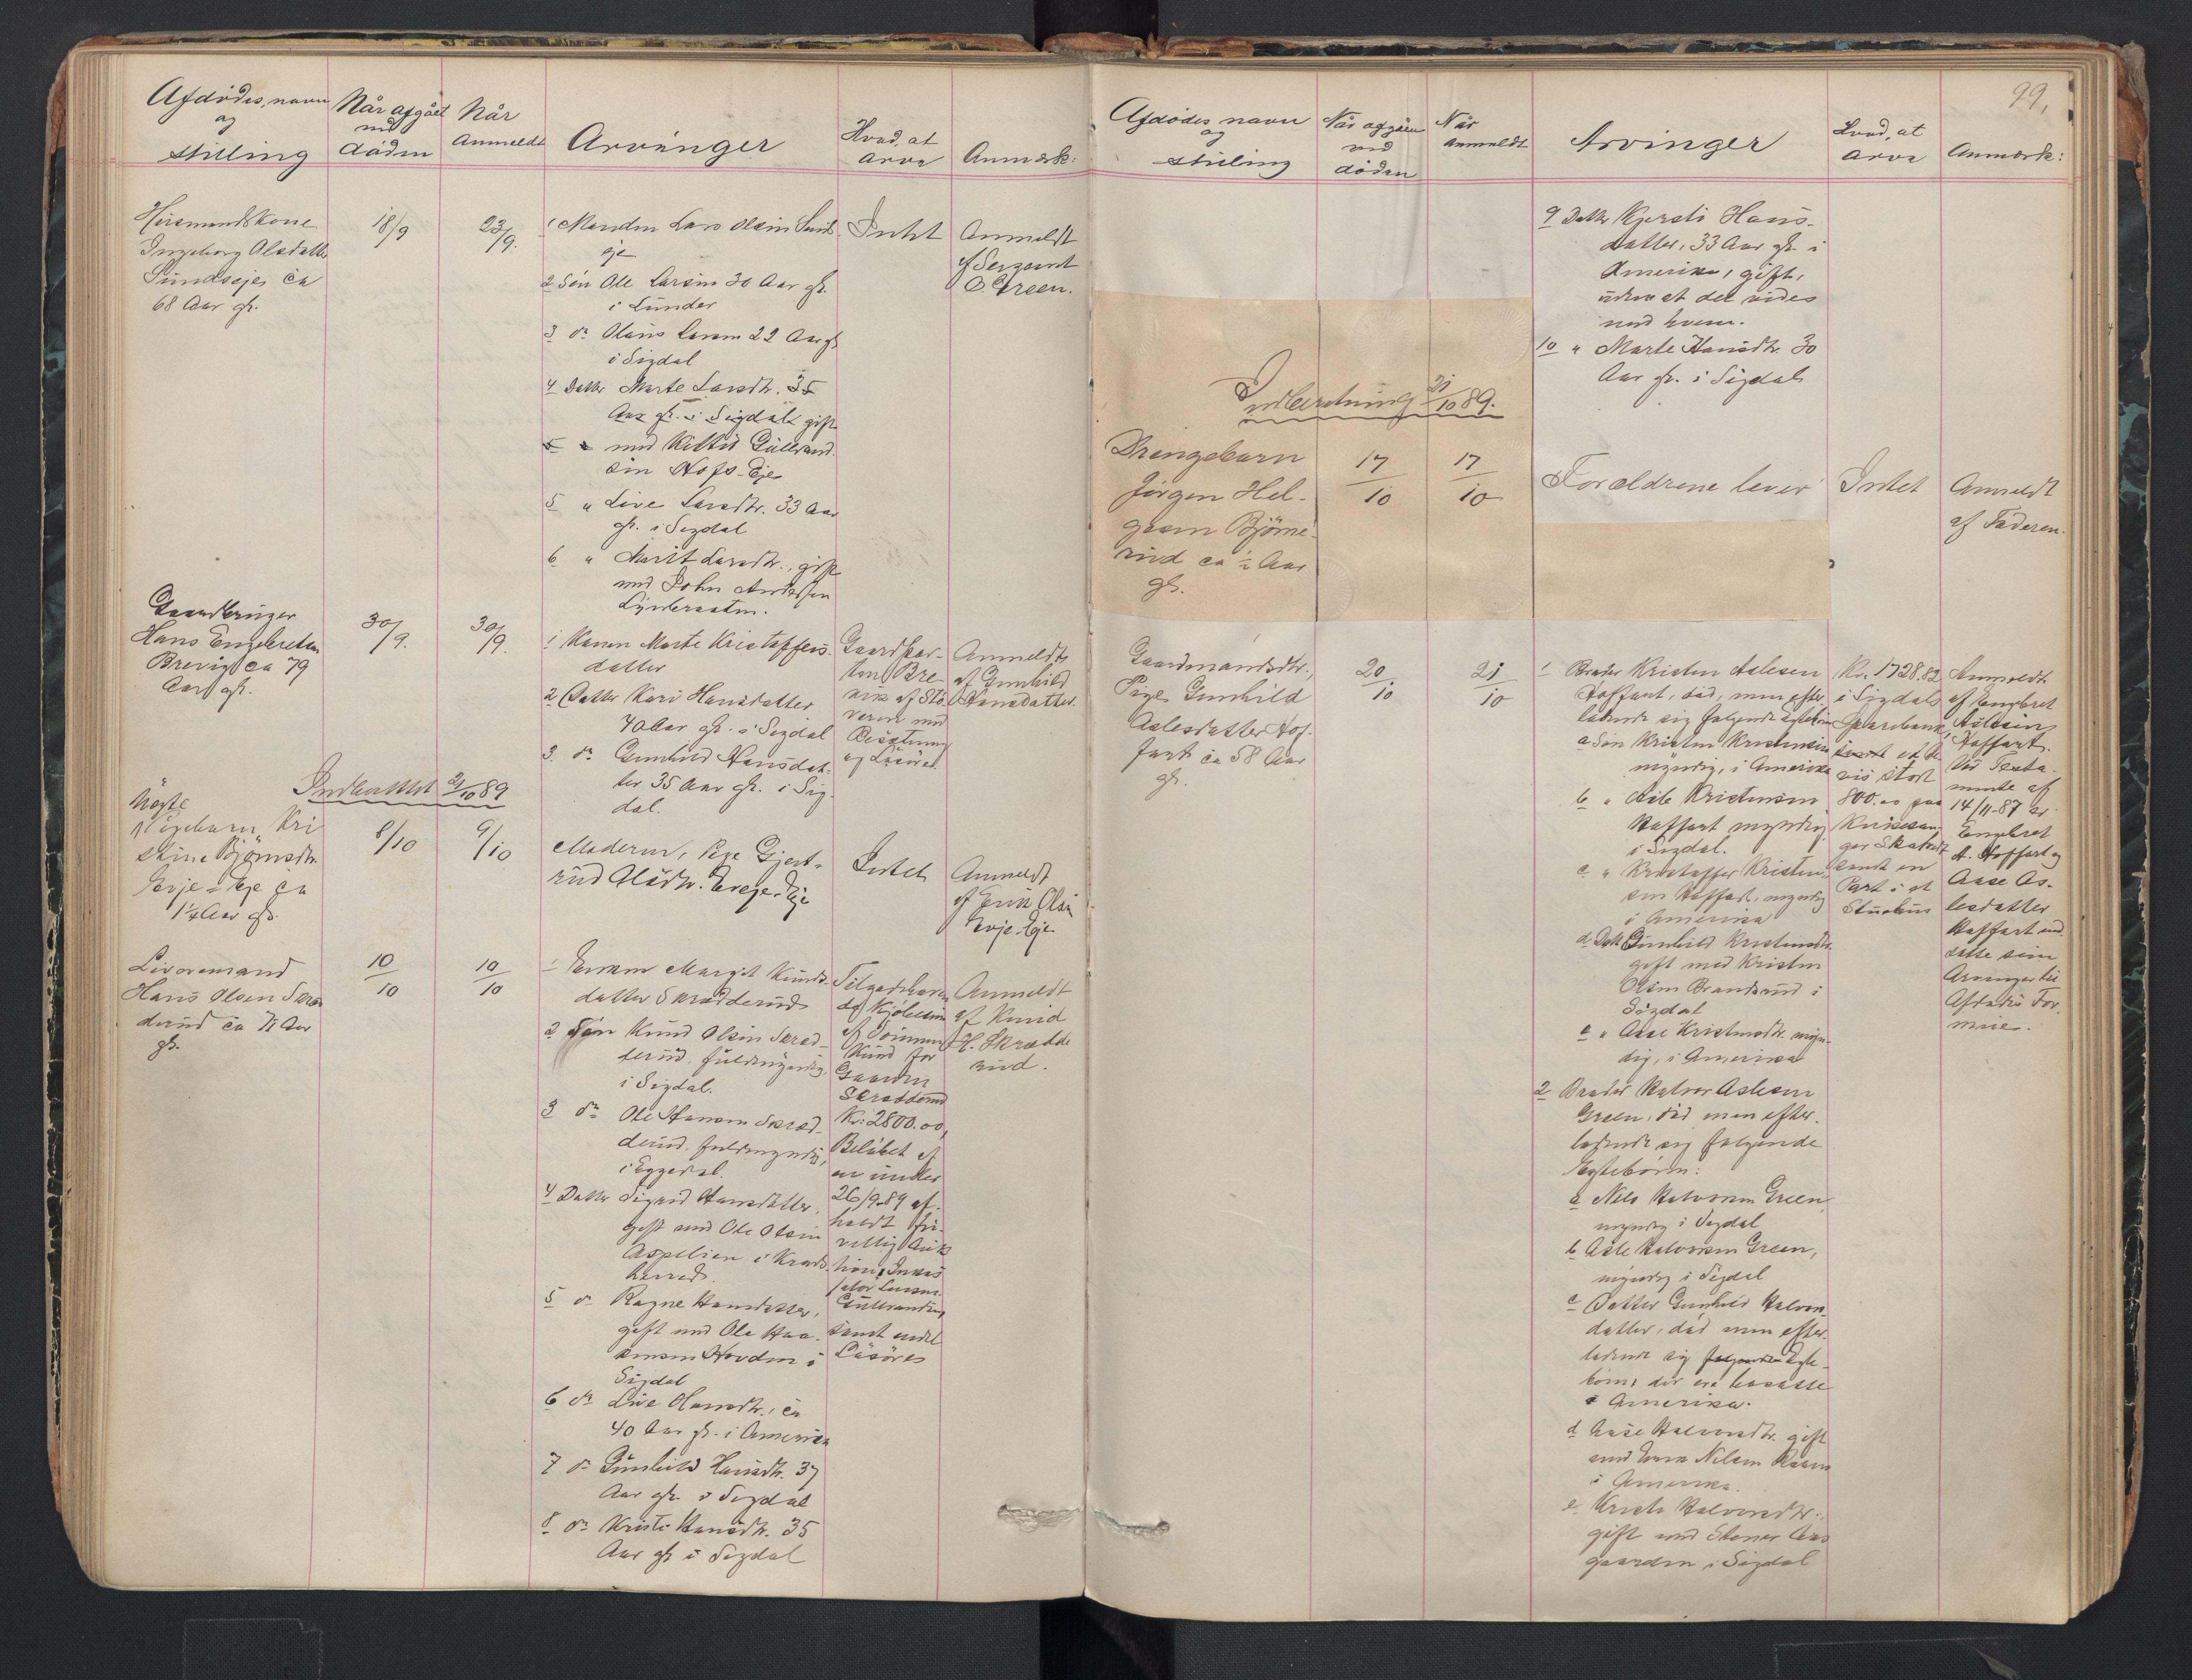 Afdödes, navn
og
stilling
Når afgået
ved
döden
Når
Anmeldt
Arvinger
Hvad, at
arve
Anmærk:
Husmandskone
Ingeborg Olsdatter
Sundseje, ca
68 Aar gl.
18/9
23/9.
1 Manden Lars Olsen Sunds
eje
2 Sön Ole Larsen 30 Aar gl.
i Lunder
3 do Olaus Larsen 22 Aar gl
i Sigdal
4 Datter Marte Larsdtr. 35
Aar gl. i Sigdal gift
med Kittil Gulbrand-
sen Hofs-Eje
5 " Live Larsdtr. 33 Aar
gl. i Sigdal
6 " Marit Larsdtr., gift
med John Andersen
Intet
Anmeldt
af Sergeant
O. Green.
Gaardbruger
Hans Engebretsen
Brevig ca 79
Aar gl.
30/9.
30/9.
1 Konen Marte Kristoffers-
datter
2 Datter Kari Hansdatter
40 Aar gl. i Sigdal
3. do Gunhild Hansdat-
ter 35 Aar gl. i Sig-
dal.
Gaardpar-
ten Bre-
vik af Stö-
veren med
Besætning
og Lösöre.
Anmeldt
af Gunhild
Hansdatter.
Indberettet 2/10 89
Uægte
Pigebarn Kri
stine Björnsdtr.
Evje-Eje ca
1¼ Aar gl.
8/10
9/10
Moderen, Pige Gjert-
rud Olsdtr. Eveje-Eje
Intet
Anmeldt
af Erik Olsen
Evje-Eje.
Livöremand
Hans Olsen Skræd
derud ca 71 Aar
gl.
10/10
10/10
1 Enken Margit Knuds-
datter Skrædderud
2 Sön Knud Olsen Skræd-
derud. fuldmyndig,
i Sigdal.
3 do Ole Hansen Skræd-
derud. fuldmyndig,
i Eggedal.
4 Datter Sigrid Hansdatter,
gift med Ole Olsen
Aspelien i Kræds-
herred.
5 do Ragne Hansdatter,
gift med Ole Haa-
kensen Hovden i
Sigdal
6 do Live Hansdtr., ca
40 Aar gl. i Amerika
7 do Gunhild Hansdtr. 37
Aar gl. i Sigdal
8 do Kristi Hansdtr. 35
Aar gl i Sigdal
Tilgodehaven
de Kjöbesum
af Sönnen
Knud for
Gaarden
Skrædderud
Kr. 2800.00,
Belöbet af
en under
26/9-89 af-
holdt fri-
villig Auk
tion, Inkas
sator Lensm.
Gulbrandsen,
samt endel
Lösöre
Anmeldt
af Knud
H. Skrædde
rud.
99,
Afdödes navn
og
stilling
Når afgåen
ved
döden
Når
anmeldt
Arvinger
Hvad, at
arve
Anmærk:
9 Datter Kjersti Hans-
datter, 33 Aar gl. i
Amerika, gift,
uden at det vides
med hvem.
10 " Marte Hansdtr. 30
Aar gl. i Sigdal
Indberetning 21/10 89.
Drengebarn
Jörgen Hel-
gesen Björne-
rud ca ½ Aar
gl.
17/10
17/10
Forældrene lever
Intet
Anmeldt
af Faderen.
Gaardmandsdtr.,
Pige Gunhild
Aslesdatter Hof-
fart ca 58 Aar
gl.
20/10
21/10
1 Broder Kristen Aslesen
Hoffart, död, men efter
ladende sig følgende Ægtebörn
a Sön Kristen Kristensen
myndig, i Amerika
b " Asle Kristensen
Hoffart myndig
i Sigdal.
c " Kristoffer Kristen-
sen Hoffart, myndig
i Amerika
d Datt Gunhild Kristensdtr.
gift med Kristen
Olsen Brandsrud i
Sigdal
e " Aase Kristensdtr. myn-
dig, i Amerika
2 Broder Halvor Aslesen
Green, död men efter-
ladende sig følgende
Ægtebörn:
a Nils Halvorsen Green,
myndig i Sigdal
b Asle Halvorsen Green,
myndig i Sigdal
c Datter Gunhild Halvors-
datter, död men efter-
ladende sig følgende Ægte-
börn, der er bosatte
i Amerika.
d Aase Halvorsdtr. gift
med Nilsen
i Amerika.
e Kristi Halvorsdtr.
gift med Stener Aas
gaarden i Sigdal
Kr. 1728.82
i Sigdals
Sparebank,
samt et Be
vis stort
800.00 paa
samt en
Part i et
Stuehus
Anmeldt
af Engebret
Aslesen
Hoffart.
Ved Testa-
mente af
14/11-87 er
Engebret
A. Hoffart og
Aase As-
lesdatter
Hoffart ind
satte som
Arvinger til
Afdödes For-
mue.